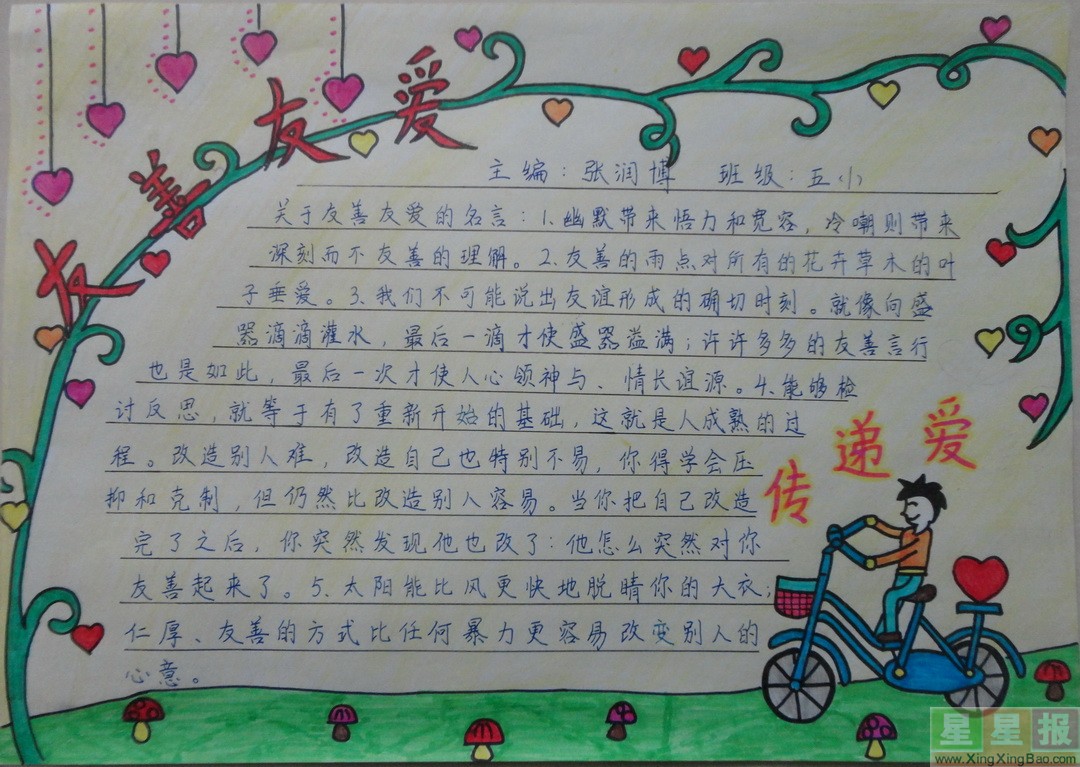 友善友爱
主编：张润博 班级：五(1)
关于友善友爱的名言：1.幽默带来悟力和宽容，冷嘲则带来
深刻而不友善的理解。2.友善的雨点对所有的花卉草木的叶
子垂爱。3.我们不可能说出友谊形成的确切时刻。就像向盛
器滴滴灌水，最后一滴才使盛器溢满；许许多多的友善言行
也是如此，最后一次才使人心领神与、情长谊源。4.能够检
讨反思，就等于有了重新开始的基础，这就是人成熟的过
程。改造别人难，改造自己也特别不易，你得学会压
抑和克制，但仍然比改造别人容易。当你把自己改造
完了之后，你突然发现他也改了：他怎么突然对你
友善起来了。5.太阳能比风更快地脱晴你的大衣；
仁厚、友善的方式比任何暴力更容易改变别人的
心意。
传递爱
星星报
www.XingXingBao.com